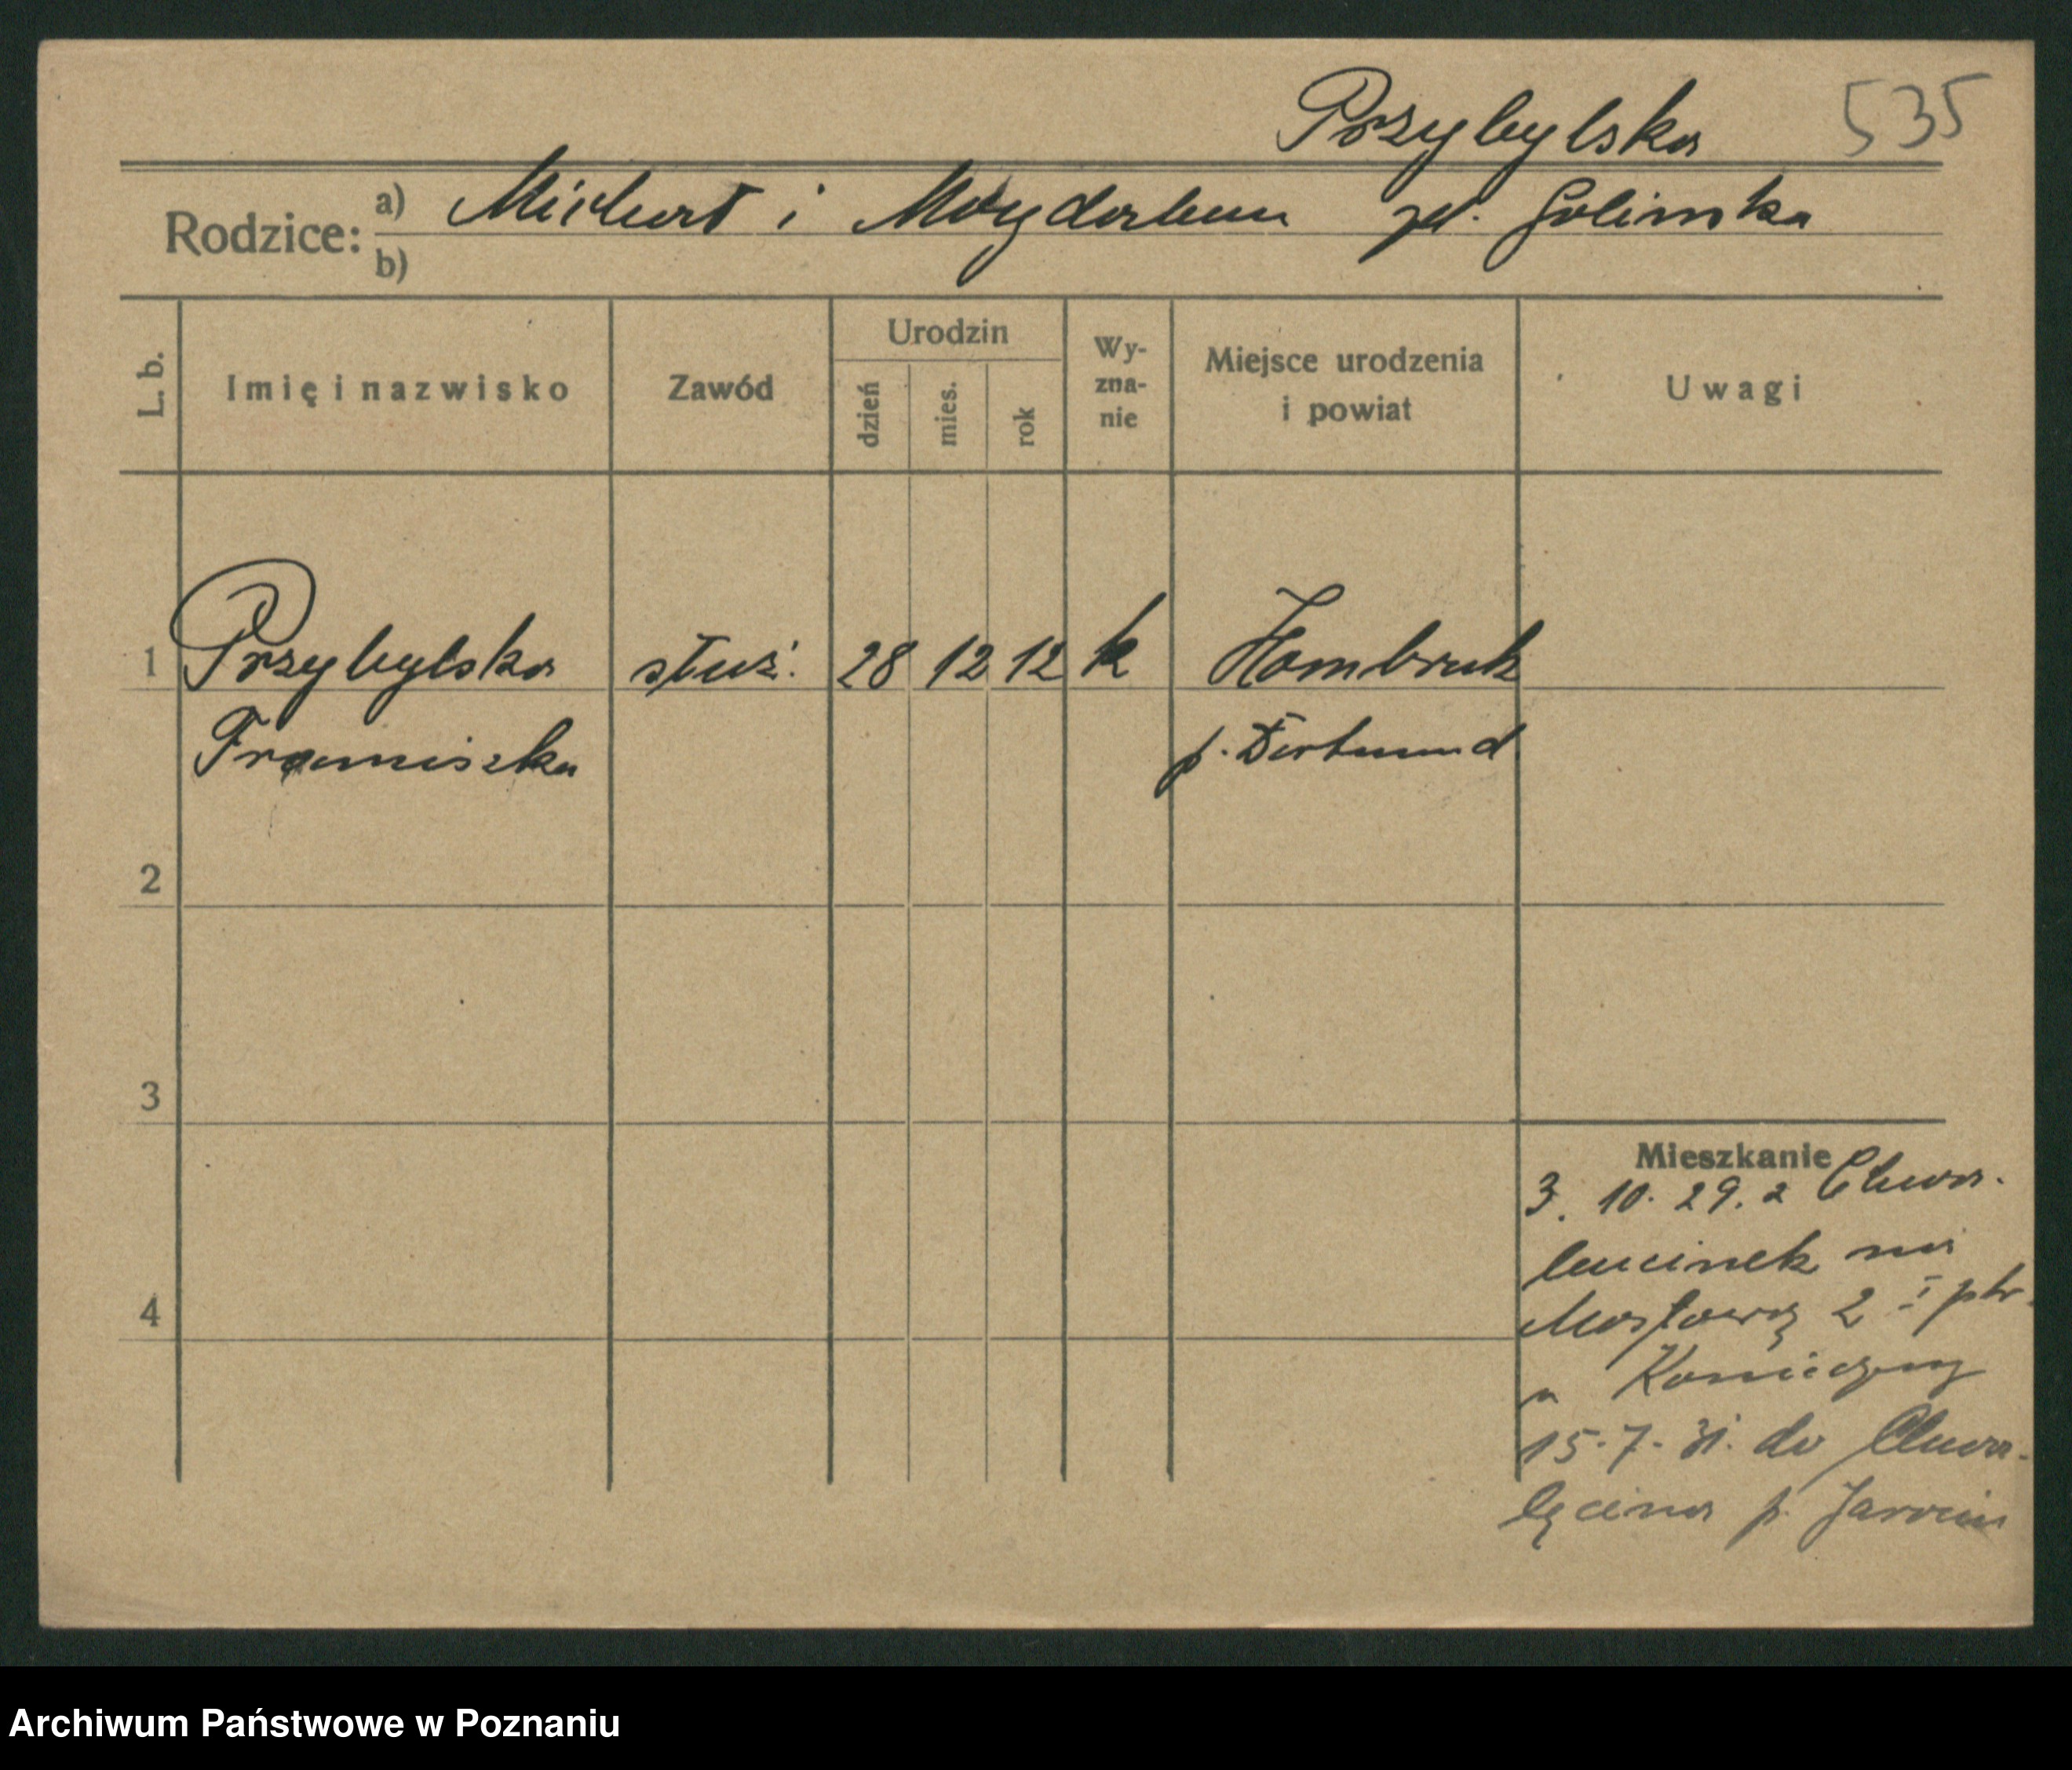 Przybylska 535
Rodzice: a) Michał i Magdalena zd. Golinska
b)
L. b. Imię i nazwisko Zawód Urodzin dzień mies. rok Wy-zna-nie Miejsce urodzenia i powiat Uwagi
1 Przybylska służ. 28 12 12 k Hombruk
Franciszka p. Dortmund.
2
3
Mieszkanie
3. 10. 29. z Chwa-
lencinek na
4
Mostową 2 I ptr.
u Konieczny
15. 7. 31. do Chwa-
lęcina p. Jarocin
Archiwum Państwowe w Poznaniu